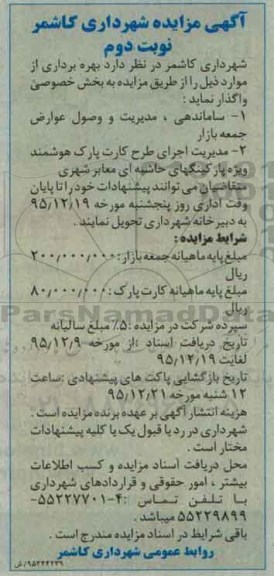 آگهی مزایده شهرداری کاشمر
نوبت دوم
شهرداری کاشمر در نظر دارد بهره برداری از
موارد ذیل را از طریق مزایده به بخش خصوصی
واگذار نماید :
۱- ساماندهی ، مدیریت و وصول عوارض
جمعه بازار
۲- مدیریت اجرای طرح کارت پارک هوشمند
ویژه پارکینگهای حاشیه ای معابر شهری
متقاضیان می توانند پیشنهادات خود را تا پایان
وقت اداری روز پنجشنبه مورخه ۹۵/۱۲/۱۹
به دبیرخانه شهرداری تحویل نمایند .
شرایط مزایده :
مبلغ پایه ماهیانه جمعه بازار : ۲۰۰/۰۰۰/۰۰۰
ریال
مبلغ پایه ماهیانه کارت پارک : ۸۰/۰۰۰/۰۰۰
ریال
سپرده شرکت در مزایده : ۵٪ مبلغ سالیانه
تاریخ دریافت اسناد : از مورخه ۹۵/۱۲/۹
لغایت ۹۵/۱۲/۱۹
تاریخ بازگشایی پاکت های پیشنهادی : ساعت
۱۲ شنبه مورخه ۹۵/۱۲/۲۱
هزینه انتشار آگهی بر عهده برنده مزایده است .
شهرداری در رد یا قبول یک یا کلیه پیشنهادات
مختار است .
محل دریافت اسناد مزایده و کسب اطلاعات
بیشتر ، امور حقوقی و قراردادهای شهرداری
با تلفن تماس : ۴-۵۵۲۲۷۷۰۱-
۵۵۲۲۹۸۹۹ میباشد .
باقی شرایط در اسناد مزایده مندرج است .
روابط عمومی شهرداری کاشمر
ParsNamadData